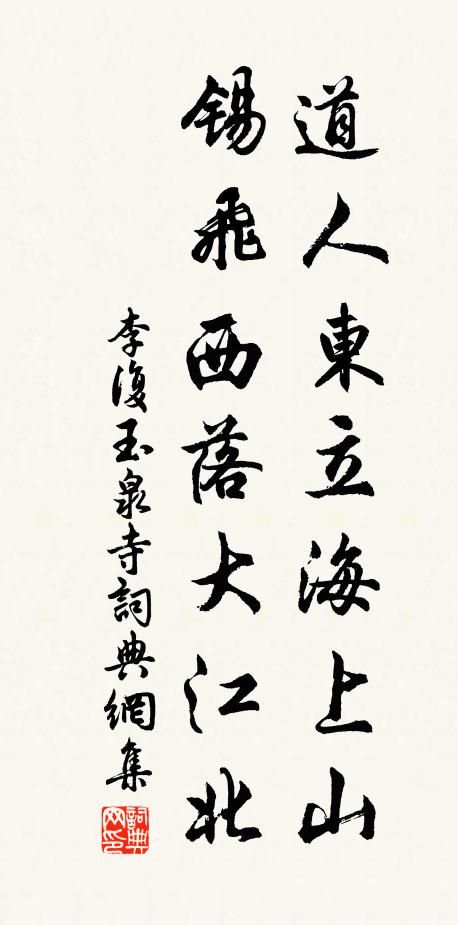 道人東立海上山
錫飛西落大江北
李復玉泉寺詞典網集
詞典网印